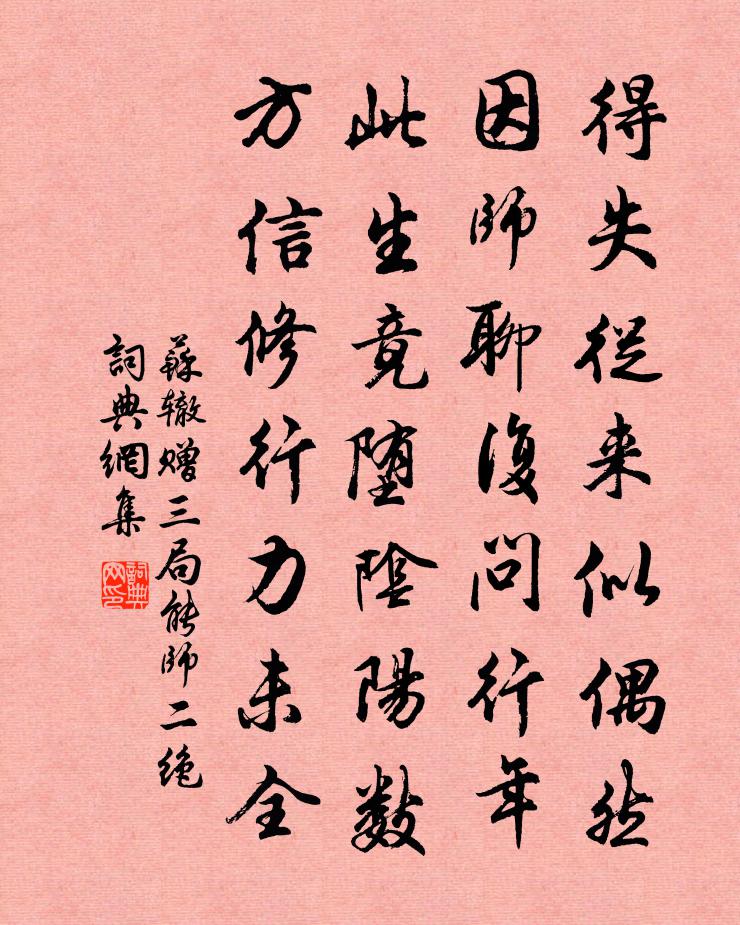 得失從来似偶然
因師聊復問行年
此生竟堕陰陽数
方信修行力未全
蘇辙赠三局能師二绝
詞典網集
詞典网印